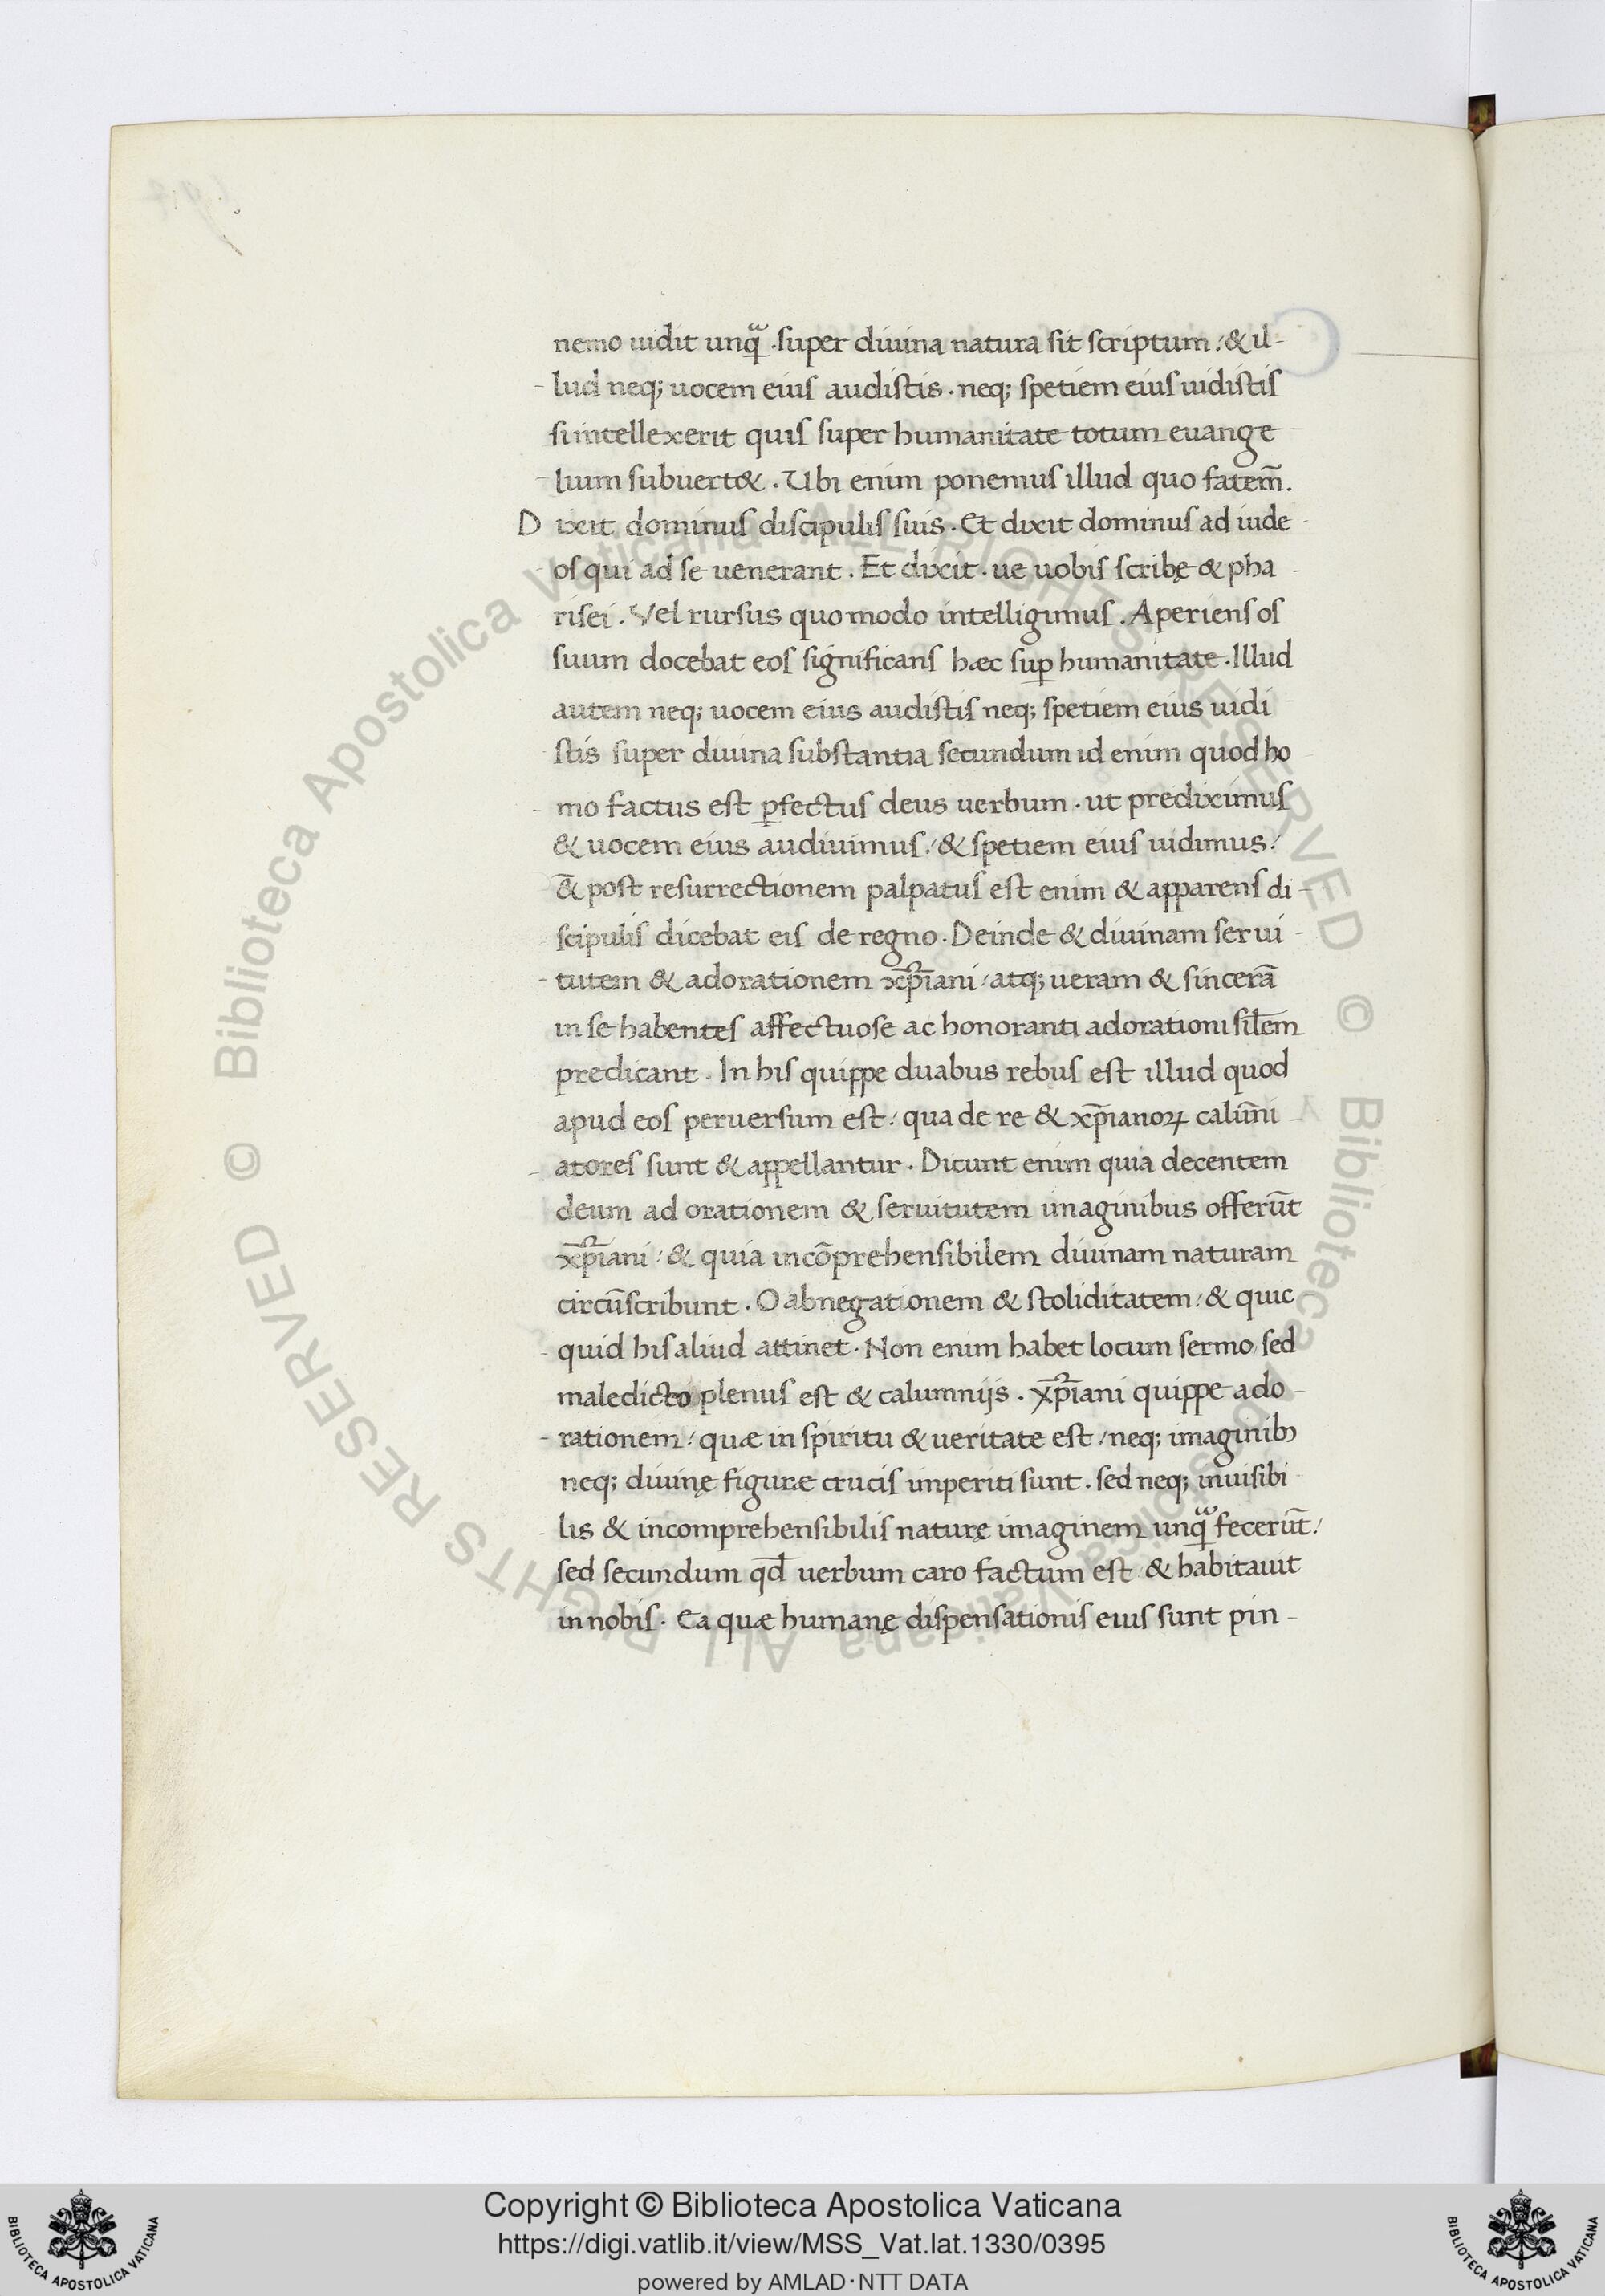 nemo uidit unqᷓ. super diuina natura sit scriptum:/ & il-
lud neq; uocem eius audistis. neq; spetiem eius uidistis
si intellexerit quis super humanitate totum euange
lium subuert&. Vbi enim ponemus illud quo fatem̄.
Dixit dominus discipulis suis. Et dixit dominus ad iude
os qui ad se uenerant. Et dixit. ue uobis scribę & pha
risei. Vel rursus quomodo intelligimus. Aperiens os
suum docebat eos significans hæc suꝑ humanitate. Illud
autem neq; uocem eius audistis neq; spetiem eius uidi
stis super diuina substantia secundum id enim quod ho
mo factus est ꝑfectus deus uerbum. ut prediximus
& uocem eius audiuimus:/ & spetiem eius uidimus:/
&̄ post resurrectionem palpatus est enim & apparens di-
scipulis dicebat eis de regno. Deinde & diuinam serui
tutem & adorationem xp̄iani:/ atq; ueram & sincerā
in se habentes affectuose ac honoranti adorationi sil̄em
predicant. In his quippe duabus rebus est illud quod
apud eos peruersum est:/ qua de re & xp̄ianoꝝ calūni
atores sunt & appellantur. Dicunt enim quia decentem
deum ad orationem & seruitutem imaginibus offerūt
xp̄iani:/ & quia incōprehensibilem diuinam naturam
circūscribunt. O abnegationem & stoliditatem:/ & quic
quid his aliud attinet. Non enim habet locum sermo sed
maledicto plenus est & calumnijs. Xp̄iani quippe ado
rationem:/ quæ in spiritu & ueritate est:/ neq; imaginibꝫ
neq; diuinę figuræ crucis imperiti sunt. sed neq; inuisibi
lis & incomprehensibilis naturę imaginem unqᷓ fecerūt:/
sed secundum qd̄ uerbum caro factum est & habitauit
in nobis. Ea quæ humanę dispensationis eius sunt pin-
© Biblioteca Apostolica Vaticana ALL RIGHTS RESERVED © Biblioteca Apostolica Vaticana ALL RIGHTS RESERVED
Copyright © Biblioteca Apostolica Vaticana
https://digi.vatlib.it/view/MSS_Vat.lat.1330/0395
powered by AMLAD·NTT DATA
BIBLIOTECA APOSTOLICA VATICANA
BIBLIOTECA APOSTOLICA VATICANA